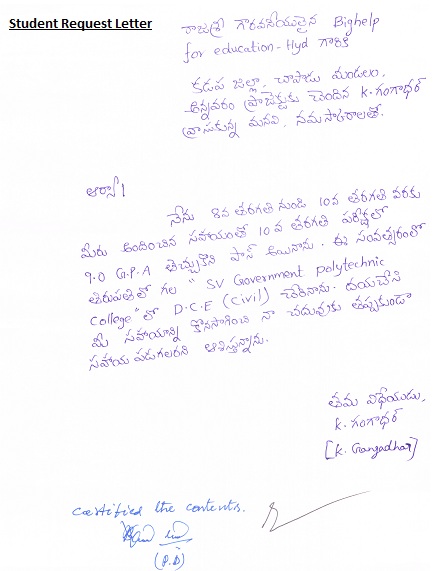 Student Request Letter
రాజశ్రీ గౌరవనీయులైన Bighelp
for education - Hyd గారికి
కడప జిల్లా, చాపాడు మండలం,
అన్నవరం ప్రాజెక్టుకు చెందిన K.గంగాధర్
వ్రాసుకున్న మనవి. నమస్కారాలతో.
ఆర్యా!
నేను 8వ తరగతి నుండి 10వ తరగతి వరకు
మీరు అందించిన సహాయంతో 10 వ తరగతి పరీక్షలో
9.0 G.P.A తెచ్చుకొని పాస్ అయినాను. ఈ సంవత్సరంలో
తిరుపతిలో గల " SV Government polytechnic
College" లో D.C.E (Civil) చేరినాను. దయచేసి
మీ సహాయాన్ని కొనసాగించి నా చదువుకు తప్పకుండా
సహాయ పడగలరని ఆశిస్తున్నాను.
తమ విధేయుడు,
K. గంగాధర్
[K. Gangadhar]
certified the contents.
(P.D)